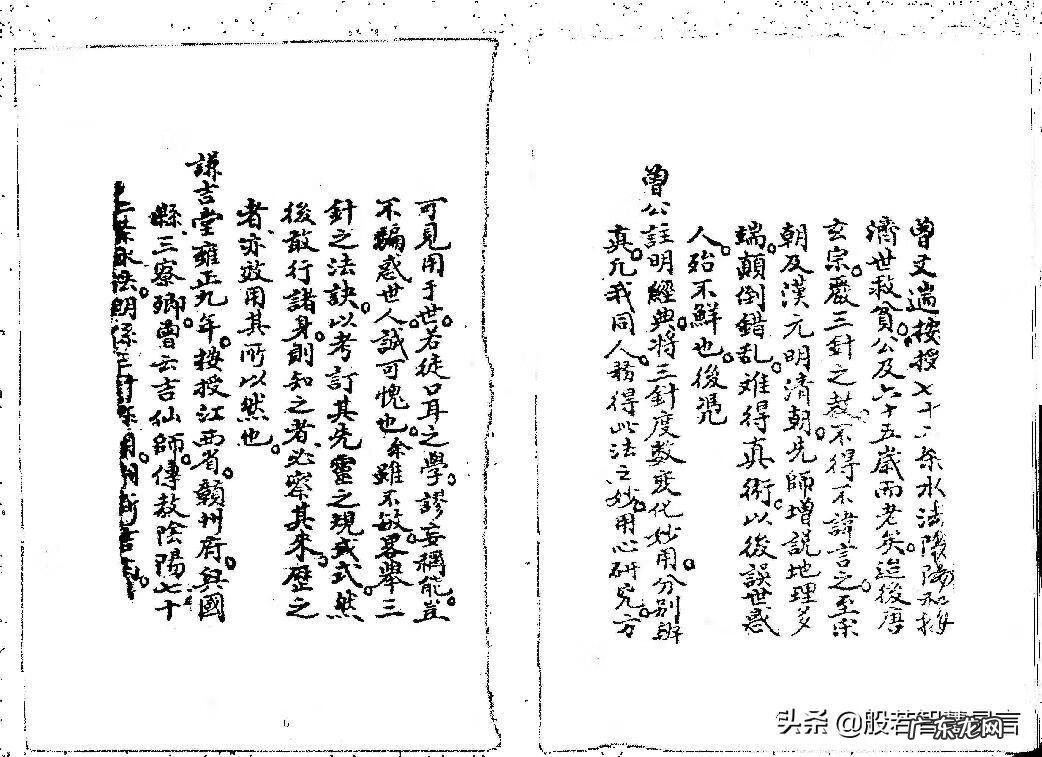 曾文遄按授七十二条水法陰陽和按
濟世救貧公及六十五歲而老矣迨後唐
玄宗嚴三針之教不得不諱言之至宋
朝及漢元明清朝先師增説地理多
端顛倒錯乱难得真術以後誤世惑
人殆不鮮也後凴
曾公註明經典將三針度数变化妙用分别辨
真兀我同人務得此法之妙用心研究方
可見用于世若徒口耳之學謬妄稱能豈
不騙惑世人誠可愧也余雖不敏畧舉三
針之法訣以考訂其先靈之現或式然
後敢行諸身則知之者必察其来歴之
者亦效用其所以然也
謙吉堂雍正九年按授江西省贛州府兴國
縣三寮卿曾云吉仙師傳教陰陽七十
二条水法
頭条 @般若智慧
广东龙网